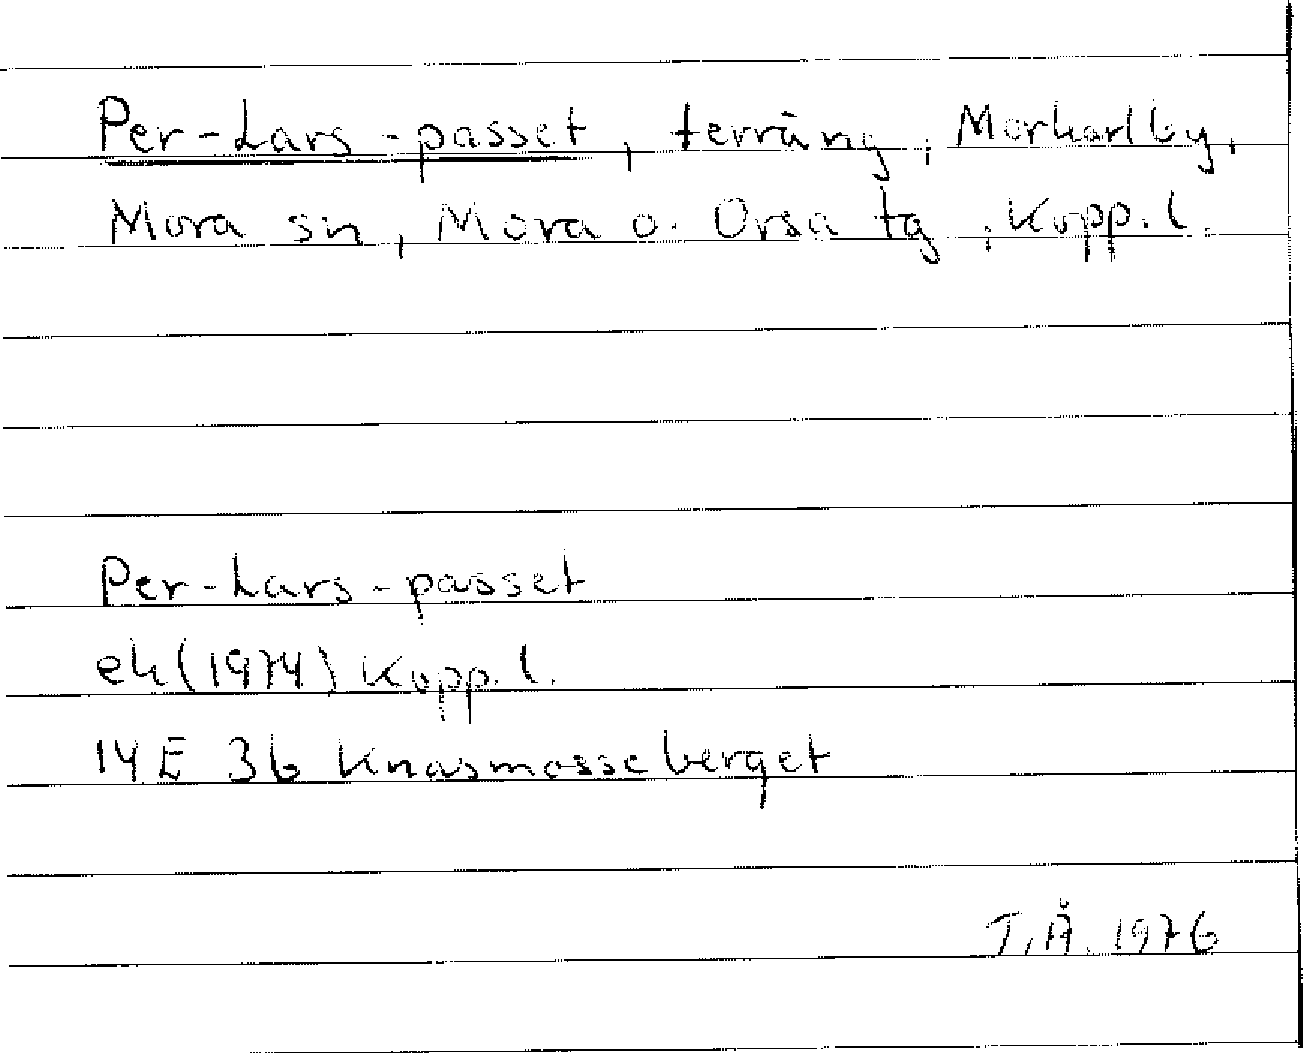 Per-Lars-passet, terräng, Morkarlby,
Mora sn, Mora o. Orsa tg, Kopp. l.
Per-Lars-passet
ek (1974) Kopp. l.
14 E 3b Knasmosseberget
T.Å. 1976